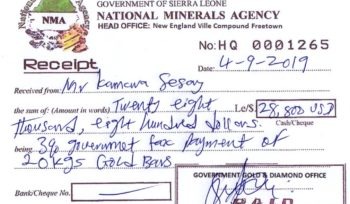 GOVERNMENT OF SIERRA LEONE
NATIONAL MINERALS AGENCY
NMA
HEAD OFFICE: New England Ville Compound Freetown
No: HQ 0001265
Receipt
Date 4-9-2019
Received from: Mr Kamara Sesay
the sum of: (Amount in words) Twenty eight Le/$ 28,800 USD
thousand, eight hundred dollars. Cash/Cheque
being 3% governmet tax payment of
20kgs Gold Bars
GOVERNMENT GOLD & DIAMOND OFFICE
Bank/Cheque No:
PAID